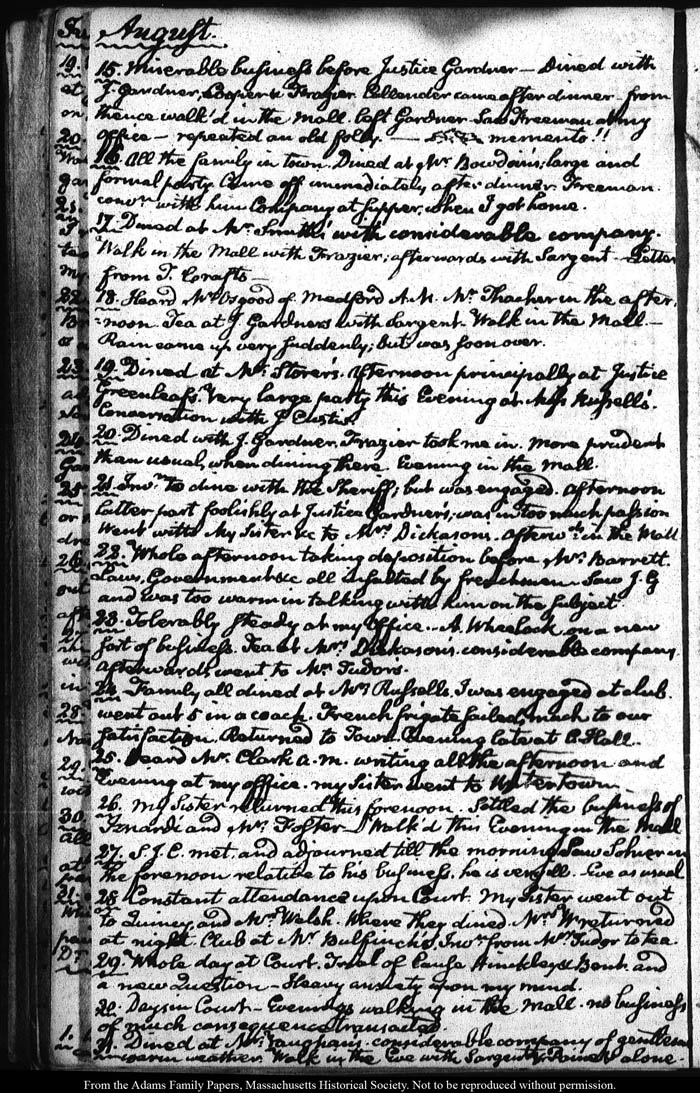 August.
15. Miserable business before Justice Gardner — Dined with
J. Gardner, Cooper & Frazier Callender came after dinner. from
thence walk'd in the Mall. left Gardner. Saw Freeman at my
office — repeated an old folly. — memento!!
16. All the family in town. Dined at Mr. Bowdoin's; large and
formal party. Came off immediately after dinner. Freeman.
convn. with him Company at supper, when I got home.
17. Dined at Mr. Smith's with considerable company.
Walk in the Mall with Frazier; afterwards with Sargent — Letter
from T. Crafts —
18. Heard Mr. Osgood of Medford A.M. Mr. Thacher in the after-
-noon. Tea at J. Gardners with Sargent. Walk in the Mall —
Rain came up very suddenly; but was soon over.
19. Dined at Mr. Storer's. Afternoon principally at Justice
Greenleafs. Very large party this Evening at Miss Russell's.
Conversation with J. Curtis
20. Dined with J. Gardner. Frazier took me in. More prudent
than usual, when dining there. Evening in the Mall.
21. Invn. to dine with the Sheriff; but was engaged. Afternoon
latter part foolishly at Justice Gardners; was in too much passion
Went with My Sister &c to Mrs. Dickasons. Afterwds. in the Mall
22. Whole afternoon taking deposition before Mr. Barrett.
Laws, Government &c all insulted by frenchmen. Saw J. G
and was too warm in talking with him on the subject
23. Tolerably steady at my Office. A. Wheelock on a new
sort of business. Tea at Mrs. Dickasons. considerable company.
Afterwards went to Mr. Tudors.
24. Family all dined at Mrs. Russells. I was engaged at club.
went out 5 in a coach. French frigate sailed; much to our
satisfaction. Returned to Town. Evening late at C. Hall.
25. Heard Mr. Clark A.M. writing all the afternoon and
Evening at my office. my Sister went to Watertown.
26. My Sister returned this forenoon. Settled the business of
Fenardi and Mr. Foster. Walk'd this Evening in the Mall
27. S.J.C. met, and adjourned till the morning. Saw Sohier in
the forenoon relative to his business. he is very ill. Eve as usual
28. Constant attendance upon Court. My Sister went out
to Quincy, and Mrs. Welsh. Where they dined. Mrs. W. returned
at night. Club at Mr. Bulfinch's. Invn. from Mr. Tudor to tea
29. Whole day at Court. Trial of cause Hinckley & Bent. and
a new Question — Heavy anxiety upon my mind.
30. Days in Court — Evenings walking in the Mall. no business
of much consequence transacted.
31. Dined at Mr. Vaughans. considerable company of gentlemen
warm weather. Walk in the Eve with Sargent, & Paine alone.
From the Adams Family Papers, Massachusetts Historical Society. Not to be reproduced without permission.